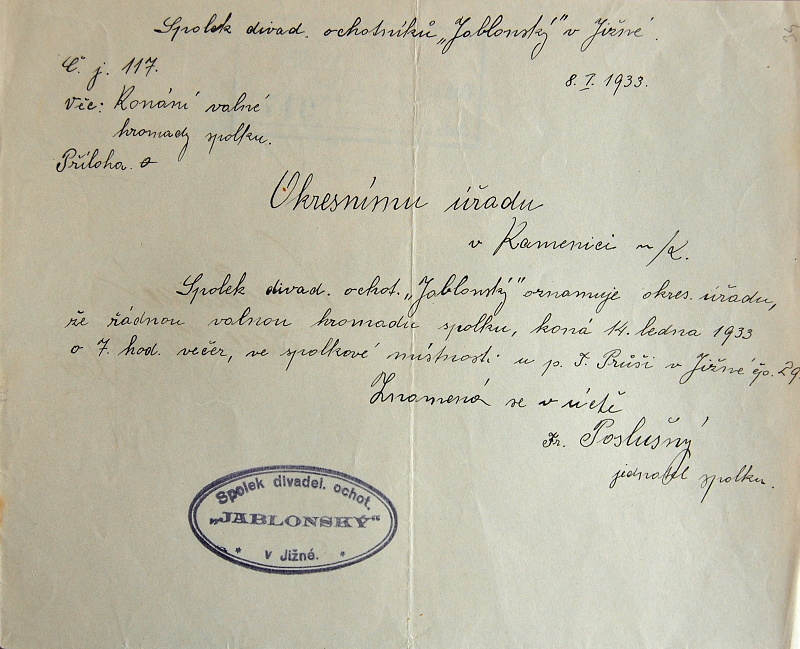 Spolek divad. ochotníků „Jablonský" v Jižné.
Č. j. 117.
8. I. 1933.
Věc: Konání valné
hromady spolku.
Příloha. 0
Okresnímu úřadu
v Kamenici n/L.
Spolek divad. ochot. „Jablonský" oznamuje okres. úřadu,
že řádnou valnou hromadu spolku, koná 14. ledna 1933
o 7. hod. večer, ve spolkové místnosti u p. F. Průši v Jižné čp. 29
Znamená se v úctě
Fr. Poslušný
jednatel spolku.
Spolek divadel. ochot.
„JABLONSKÝ"
* v Jižné. *